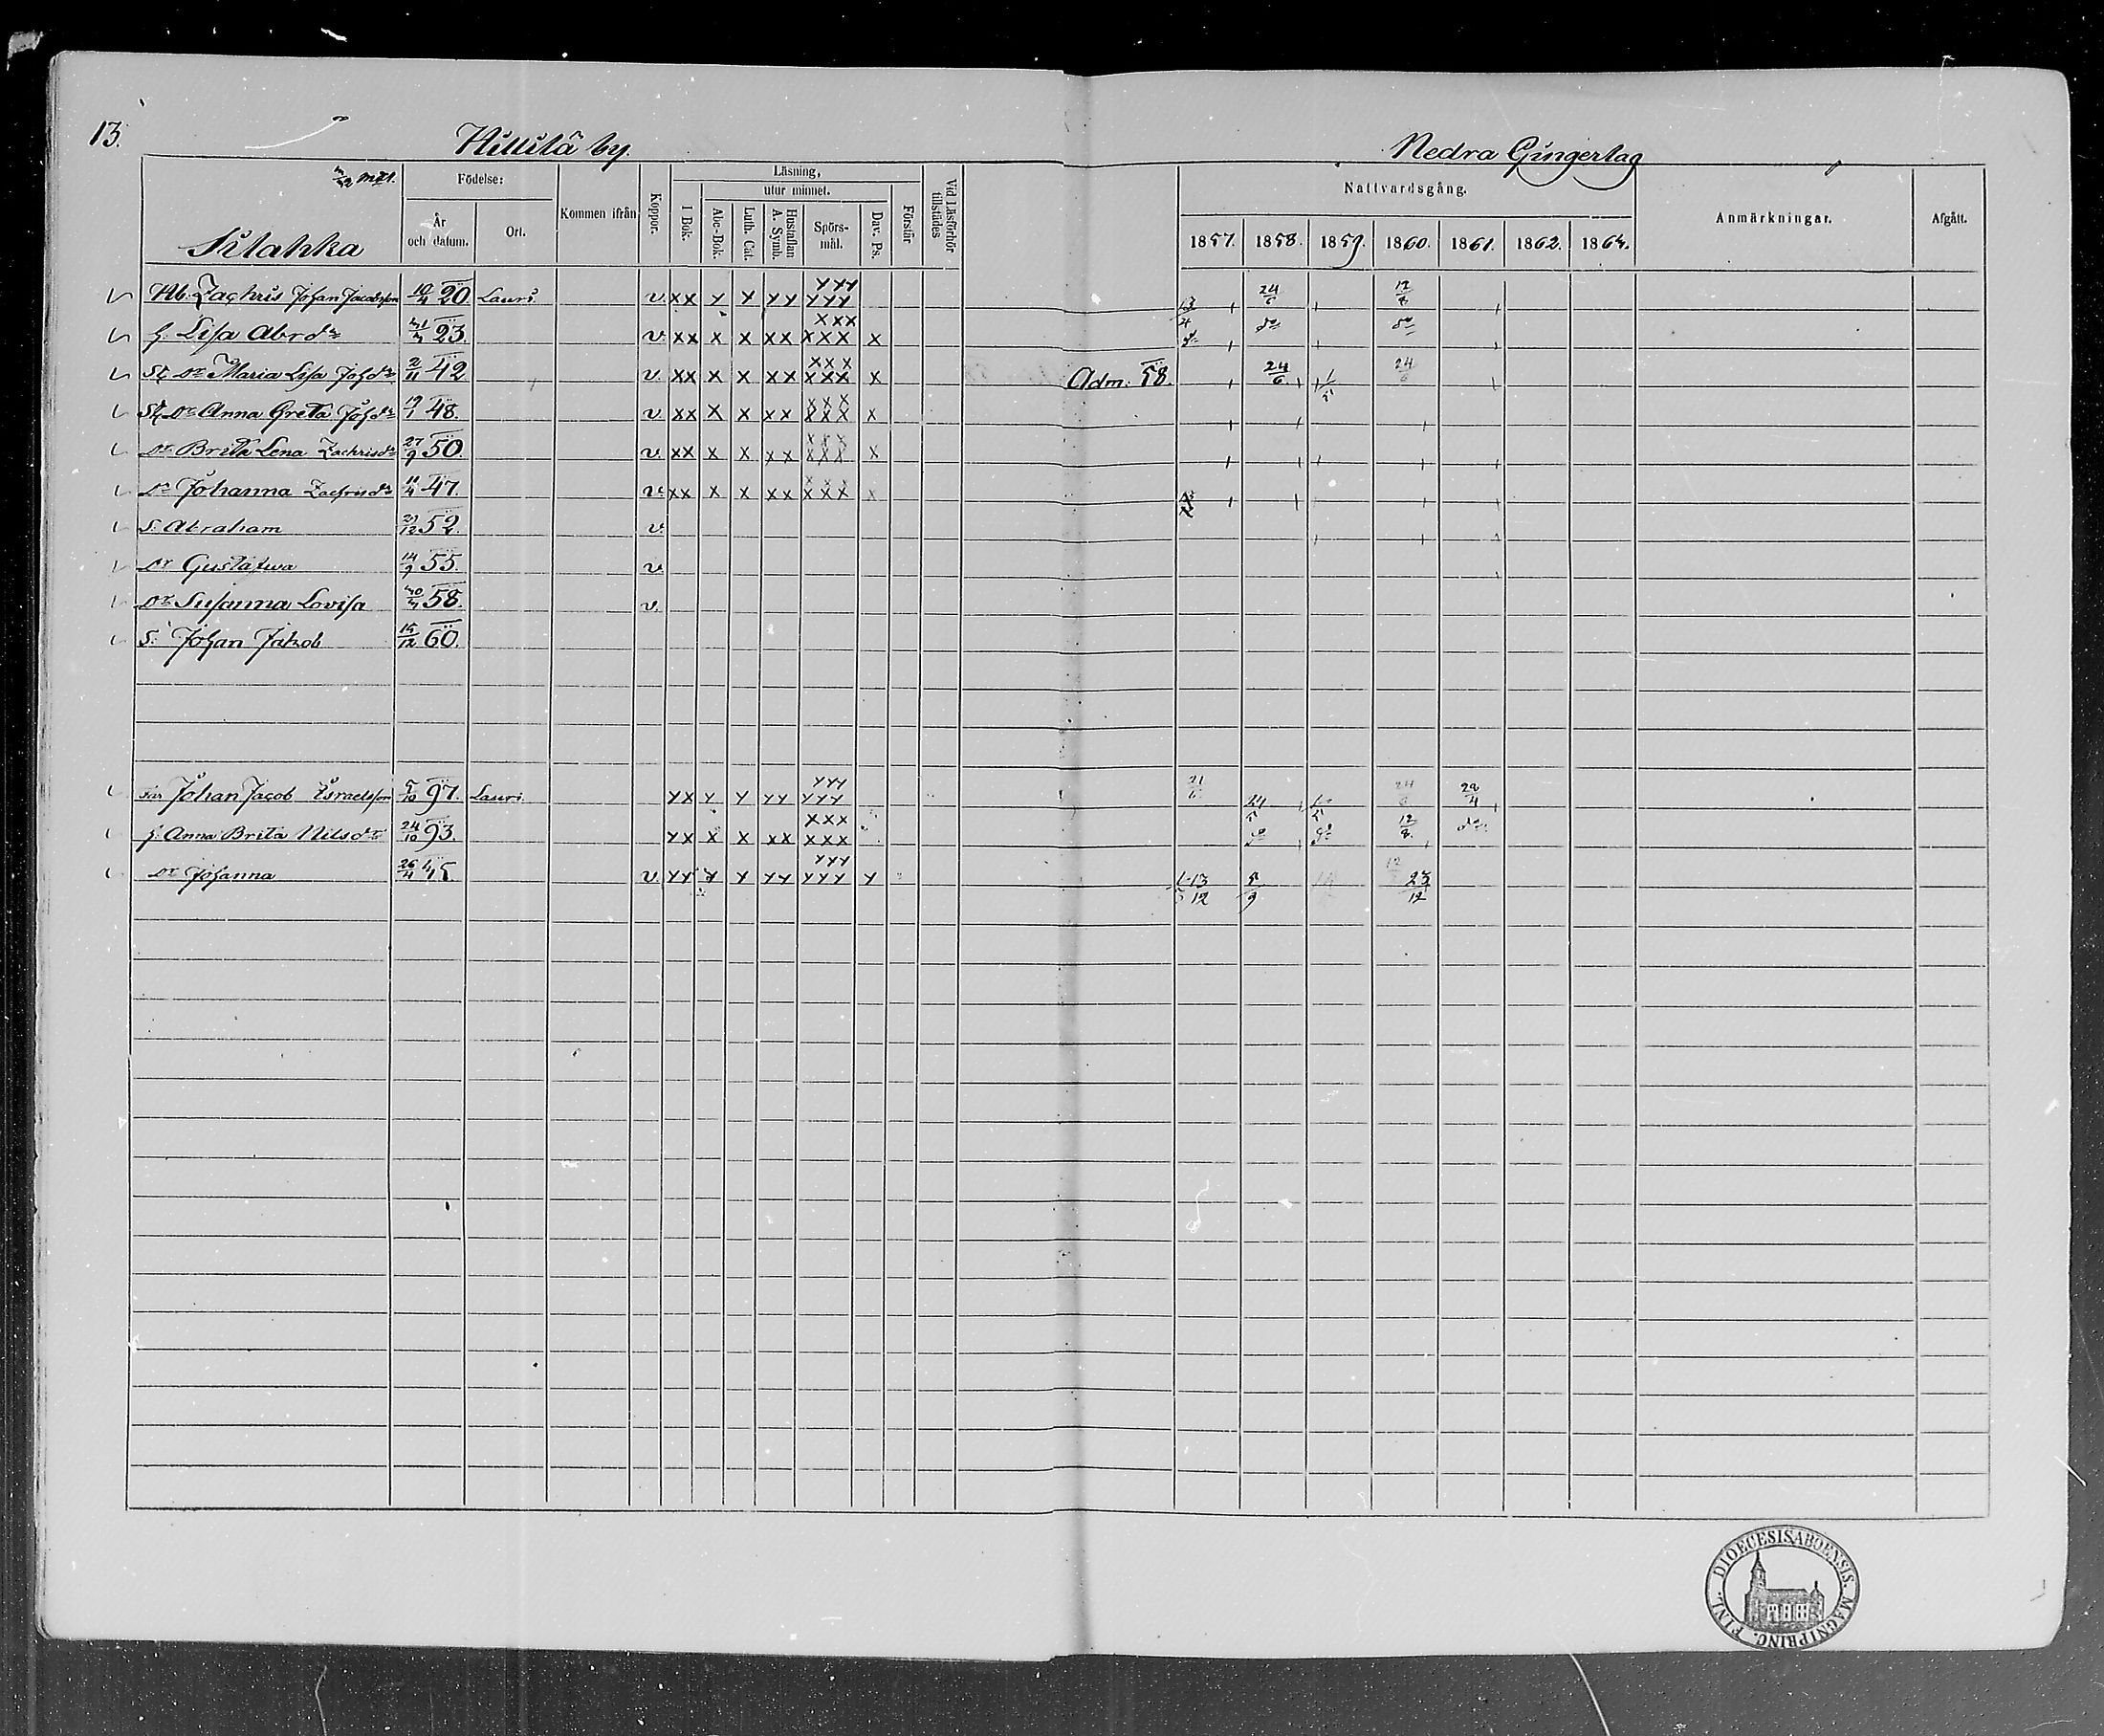 13.
Hillilä by.
Nedra Gingerlag
Silahka
mtl.
Födelse:
År och datum.
Ort.
Kommen ifrån
Koppor.
Läsning,
utur minnet.
I Bok.
Abc-Bok.
Luth. Cat.
Hustaflan A. Symb.
Spörs-mål.
Dav. Ps.
Förstår
Vid Läsförhör tillstädes
Nattvardsgång.
1857. 1858. 1859. 1860. 1861. 1862. 1864.
Anmärkningar.
Afgått.
Hb. Zachris Johan Jacobsson 10/4 20. Lauri. v. xx x x xx xxx xxx 24/6 12/8
h. Lisa Abr.dr 23. v. xx x x xx xxx xxx x do do
St. Dr Maria Lisa Joh.dr 2/11 42 v. xx x x xx xxx xxx x Adm. 58. 24/6 24/6
St. Dr Anna Greta Joh.dr 19/1 48. v. xx x x xx xxx xxx x
Dr Brita Lena Zachrisdr 27/9 50. v. xx x x xx xxx xxx x
Dr Johanna Zachrisdr 11/4 47. v. xx x x xx xxx xxx x
S. Abraham 21/12 52. v.
Dr Gustafwa 14/9 55. v.
Dr Susanna Lovisa 58. v.
S. Johan Jakob 15/12 60.
Far Johan Jacob Israelsson 5/10 97. Lauri. xx x x xx xxx xxx 21/6 24/6 22/4
h. Anna Brita Nilsdr 24/10 93. xx x x xx xxx xxx do do 12/8 do
Dr Johanna 26/4 45 v. xx x x xx xxx xxx x 13/12 5/9 23/12
DIOECESIS ABOENSIS. MAGNI PRINC. FINL.